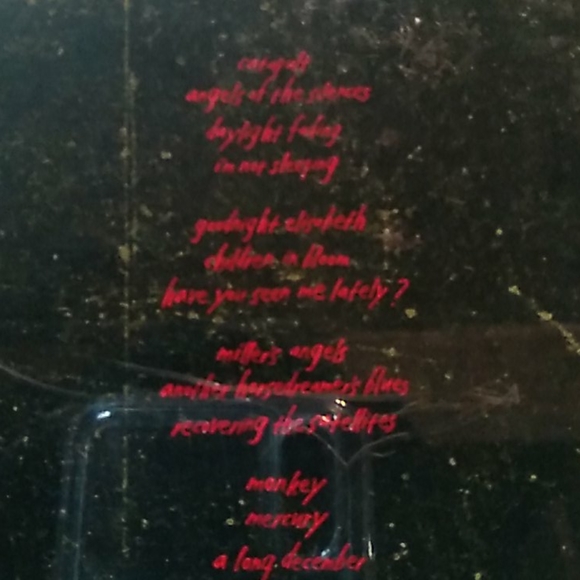 catapult
angels of the silences
daylight fading
i'm not sleeping
goodnight elisabeth
children in bloom
have you seen me lately?
miller's angels
another horsedreamer's blues
recovering the satellites
monkey
mercury
a long december